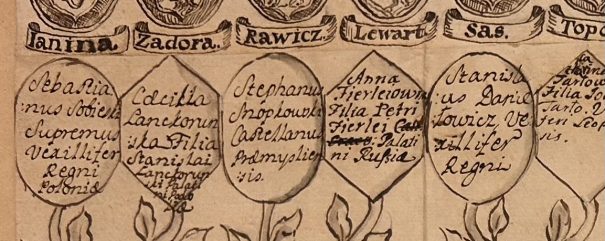 Janina.
Zadora.
Rawicz.
Lewart.
Sas.
Topo
Sebastia
nus Sobieski
Supremus
Vexillifer
Regni
Poloniæ
Cæcilia
Lanckorun
ska Filia
Stanislai
Lanckorun
ski Palati
Stephanus
Snopkowski
Castellanus
Præmyslien
sis.
Anna
Fjerleiowna
Filia Petri
Fjerlei
Palati
ni Russiæ
Stanisla
us Danie
lowicz, Ve
xillifer
Regni
Tarlow
Filia
Tarlo.
sis.